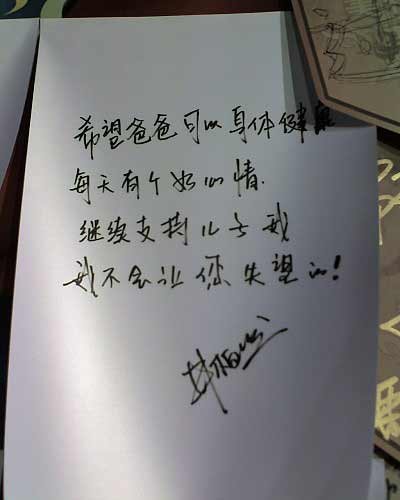 希望爸爸可以身体健康
每天有个好心情.
继续支持儿子我
我不会让你失望的!